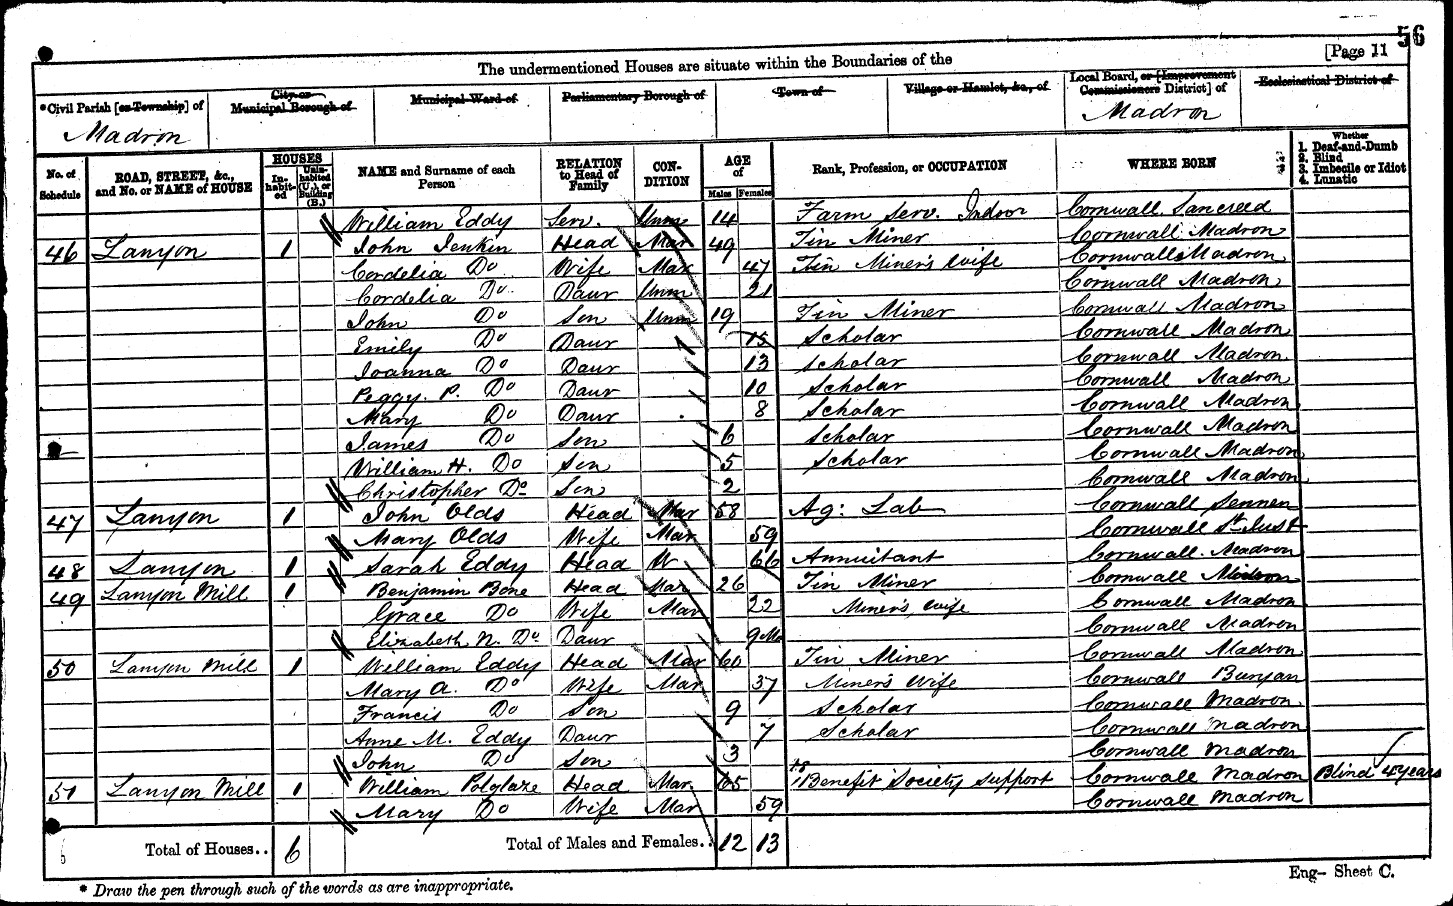 56
[Page 11
The undermentioned Houses are situate within the Boundaries of the
*Civil Parish [or Township] of City or Municipal Borough of Municipal Ward of Parliamentary Borough of Town of Village or Hamlet, &c., of Local Board, or [Improvement Commissioners District] of Ecclesiastical District of
Madron Madron
No. of Schedule ROAD, STREET, &c., and No. or NAME of HOUSE HOUSES In-habit-ed Unin-habited (U.), or Building (B.) NAME and Surname of each Person RELATION to Head of Family CON-DITION AGE of Males Females Rank, Profession, or OCCUPATION WHERE BORN Whether 1. Deaf-and-Dumb 2. Blind 3. Imbecile or Idiot 4. Lunatic
William Eddy Serv. Unm 14 Farm Serv. Indoor Cornwall Sancreed
46 Lanyon 1 John Jenkin Head Mar 49 Tin Miner Cornwall Madron
Cordelia Do Wife Mar 47 Tin Miner's Wife Cornwall Madron
Cordelia Do Daur Unm 21 Cornwall Madron
John Do Son Unm 19 Tin Miner Cornwall Madron
Emily Do Daur 15 Scholar Cornwall Madron
Joanna Do Daur 13 Scholar Cornwall Madron
Peggy. P. Do Daur 10 Scholar Cornwall Madron
Mary Do Daur 8 Scholar Cornwall Madron
James Do Son 6 Scholar Cornwall Madron
William H. Do Son 5 Scholar Cornwall Madron
Christopher Do Son 2 Cornwall Madron
47 Lanyon 1 John Olds Head Mar 58 Ag: Lab Cornwall Sennen
Mary Olds Wife Mar 59 Cornwall St Just
48 Lanyon 1 Sarah Eddy Head W 66 Annuitant Cornwall Madron
49 Lanyon Mill 1 Benjamin Bone Head Mar 26 Tin Miner Cornwall Madron
Grace Do Wife Mar 22 Miner's Wife Cornwall Madron
Elizabeth N. Do Daur 9 Mo Cornwall Madron
50 Lanyon Mill 1 William Eddy Head Mar 60 Tin Miner Cornwall Madron
Mary A. Do Wife Mar 37 Miner's Wife Cornwall Buryan
Francis Do Son 9 Scholar Cornwall Madron
Anne M. Eddy Daur 7 Scholar Cornwall Madron
John Do Son 3 Cornwall Madron
51 Lanyon Mill 1 William Polglaze Head Mar 65 Benefit Society support Cornwall Madron Blind 4 years
Mary Do Wife Mar 59 Cornwall Madron
Total of Houses.. 6 Total of Males and Females.. 12 13
* Draw the pen through such of the words as are inappropriate.
Eng- Sheet C.